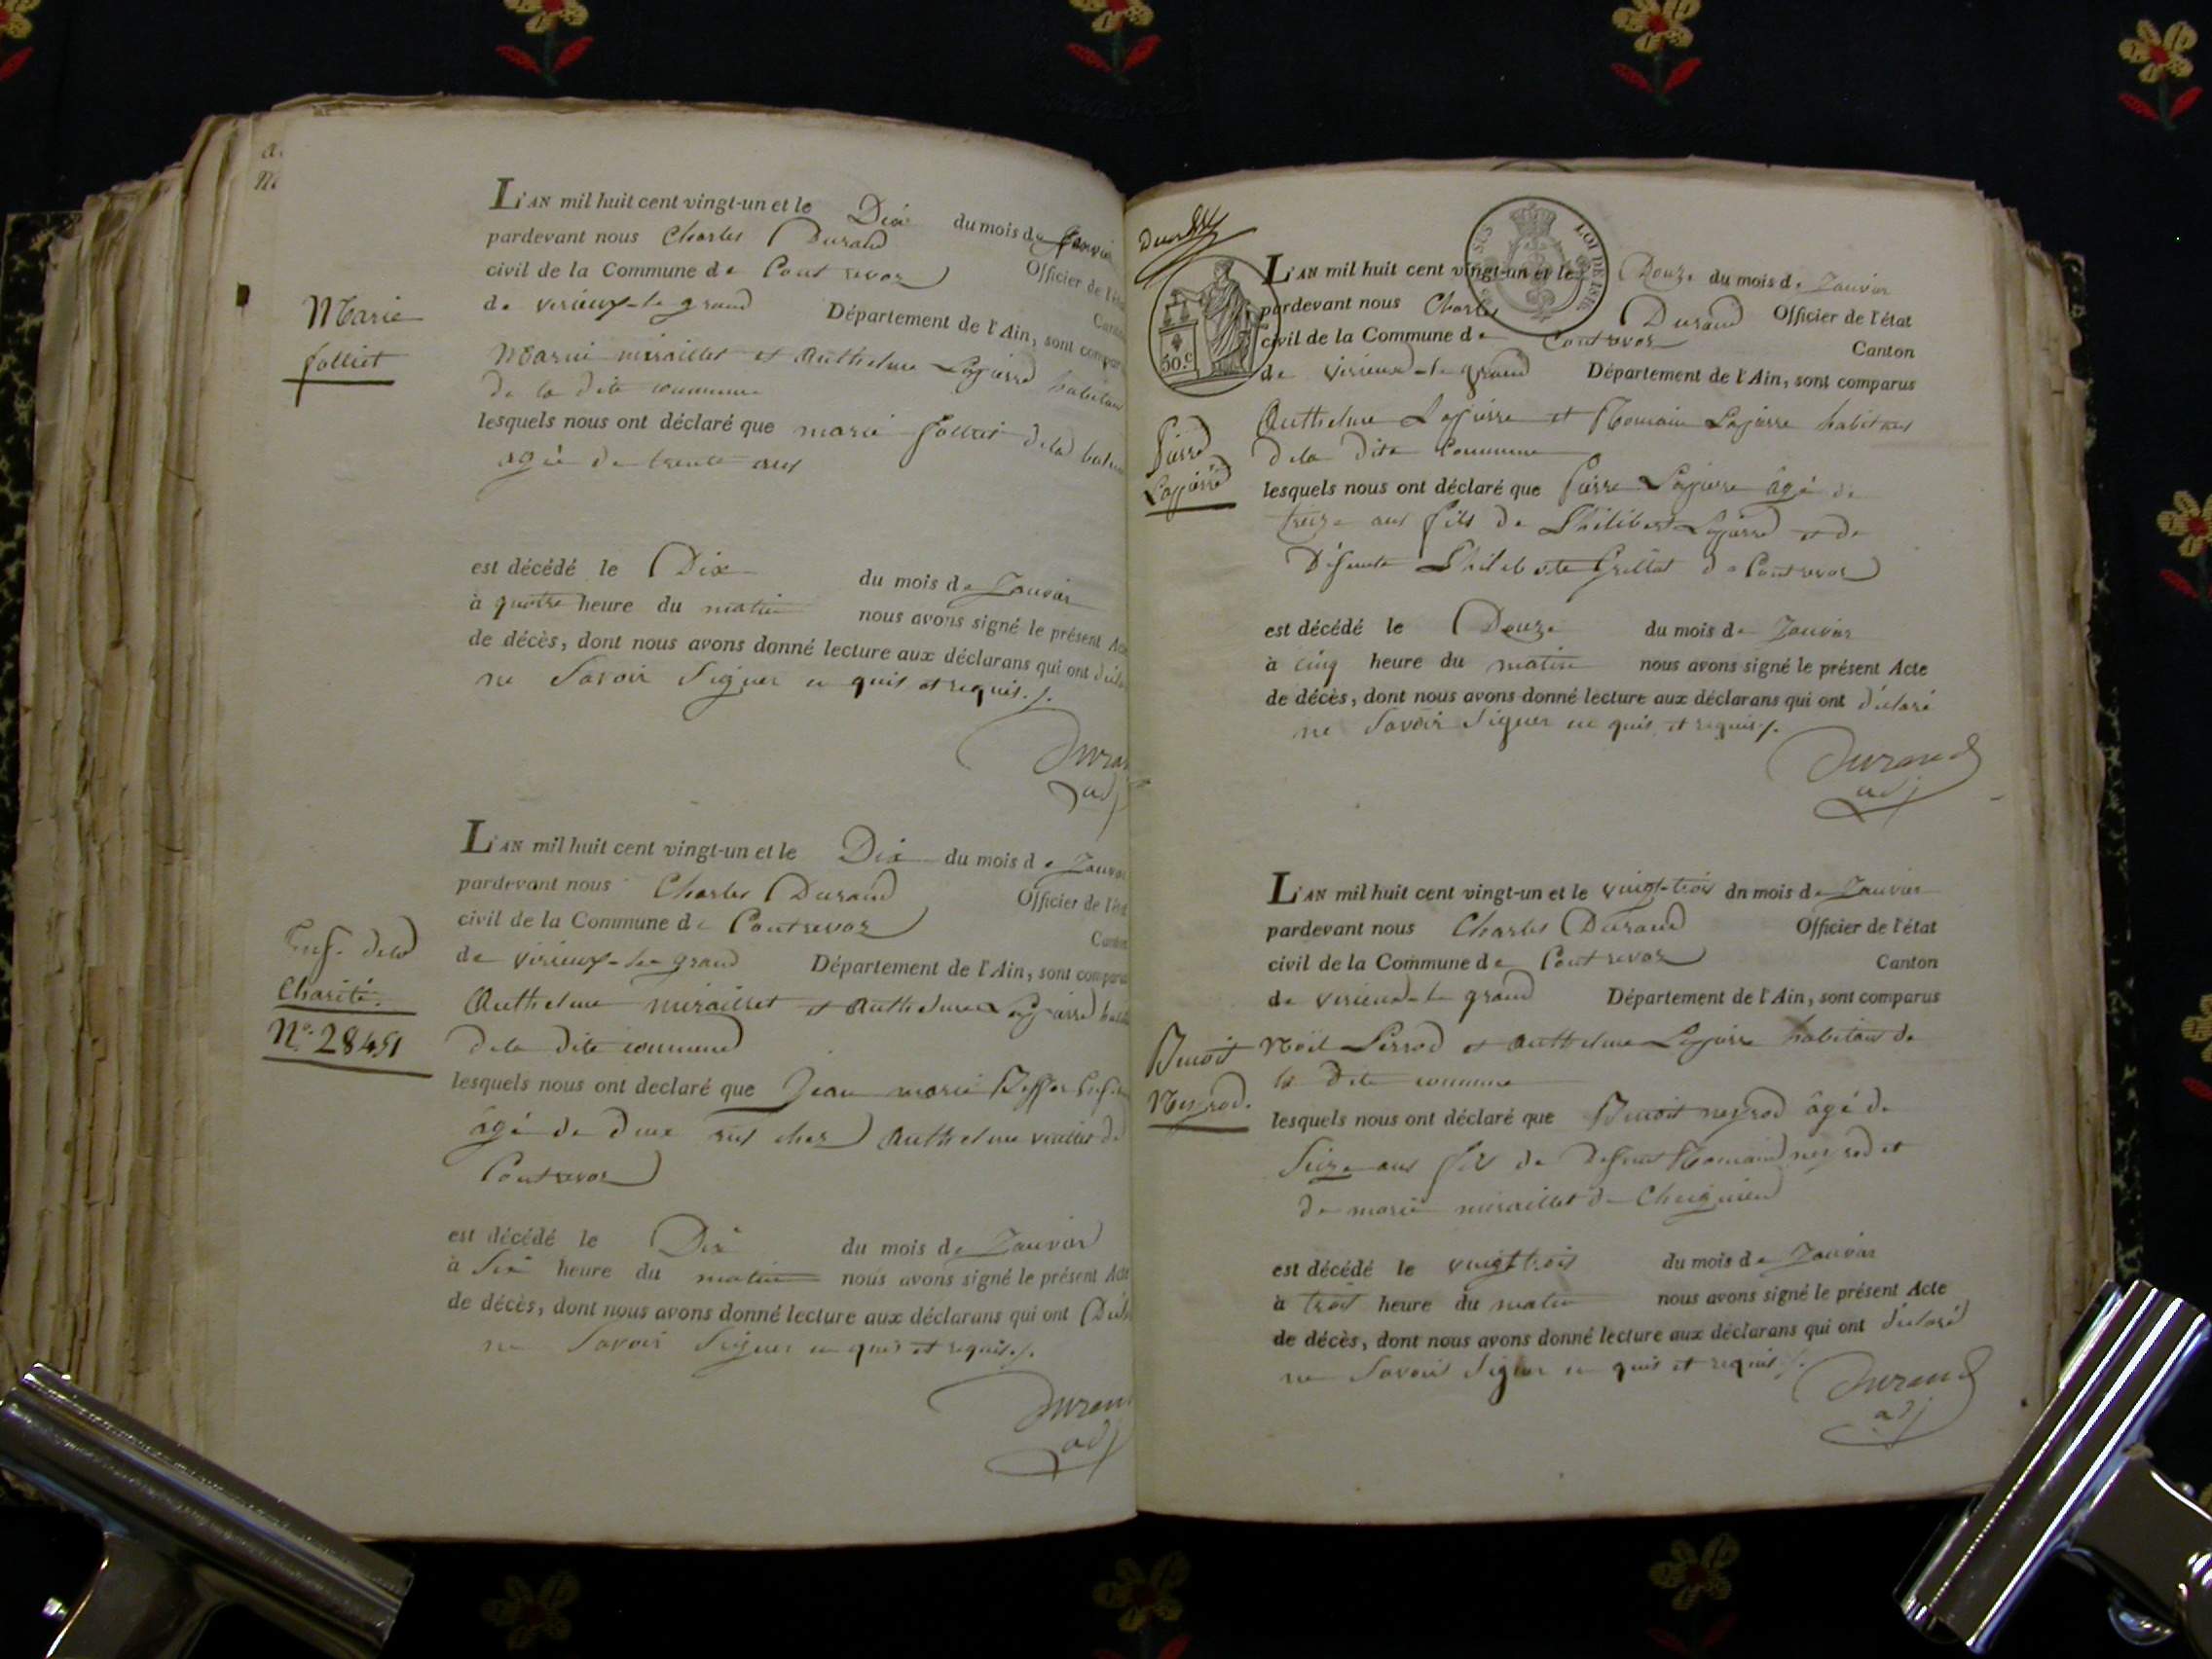 L'AN mil huit cent vingt-un et le Dix du mois de Janvier
pardevant nous Charles Durand Officier de l'état
civil de la Commune de Contrevoz Canton
de virieux-le-grand Département de l'Ain, sont comparus
Marie
folliet
miraillet et Anthelme Lapierre habitans
de la dite commune
lesquels nous ont déclaré que marie folliet
agée de trente ans
est décédé le Dix du mois de Janvier
à quatre heure du matin nous avons signé le présent Acte
de décès, dont nous avons donné lecture aux déclarans qui ont
ne Savoir Signer en quis et requis ./.
Durand
adj
L'AN mil huit cent vingt-un et le Dix du mois de Janvier
pardevant nous Charles Durand Officier de l'état
civil de la Commune de Contrevoz Canton
de virieux-le-grand Département de l'Ain, sont comparus
Enf. dela
Charité.
N.° 28451
Anthelme miraillet et Anthelme Lapierre
dela dite commune
lesquels nous ont declaré que Jean marie
âgé de deux ans chez Anthelme de
Contrevoz
est décédé le Dix du mois de Janvier
à Six heure du matin nous avons signé le présent Acte
de décès, dont nous avons donné lecture aux déclarans qui ont
ne Savoir Signer en quis et requis ./.
Durand
adj
SUS LOI DE 1816
50.c
L'AN mil huit cent vingt-un et le Douze du mois de Janvier
pardevant nous Charles Durand Officier de l'état
civil de la Commune de Contrevoz Canton
de virieux-le-grand Département de l'Ain, sont comparus
Pierre
Lapierre
Anthelme Lapierre et Romain Lapierre habitans
dela dite Commune
lesquels nous ont déclaré que Pierre Lapierre âgé de
treize ans fils de Philibert Lapierre et de
Défunte Philiberte Grillot de Contrevoz
est décédé le Douze du mois de Janvier
à cinq heure du matin nous avons signé le présent Acte
de décès, dont nous avons donné lecture aux déclarans qui ont déclaré
ne Savoir Signer en quis et requis ./.
Durand
adj
L'AN mil huit cent vingt-un et le vingt-trois dn mois de Janvier
pardevant nous Charles Durand Officier de l'état
civil de la Commune de Contrevoz Canton
de virieux-le grand Département de l'Ain, sont comparus
Benoit
Neyrod.
Noël Perrod et Anthelme Lapierre habitans de
la dite commune
lesquels nous ont déclaré que Benoit neyrod âgé de
Seize ans fils de Defunt Romain neyrod et
de marie miraillet de Cheignieu
est décédé le vingt trois du mois de Janvier
à trois heure du matin nous avons signé le présent Acte
de décès, dont nous avons donné lecture aux déclarans qui ont déclaré
ne Savoir Signer en quis et requis ./.
Durand
adj